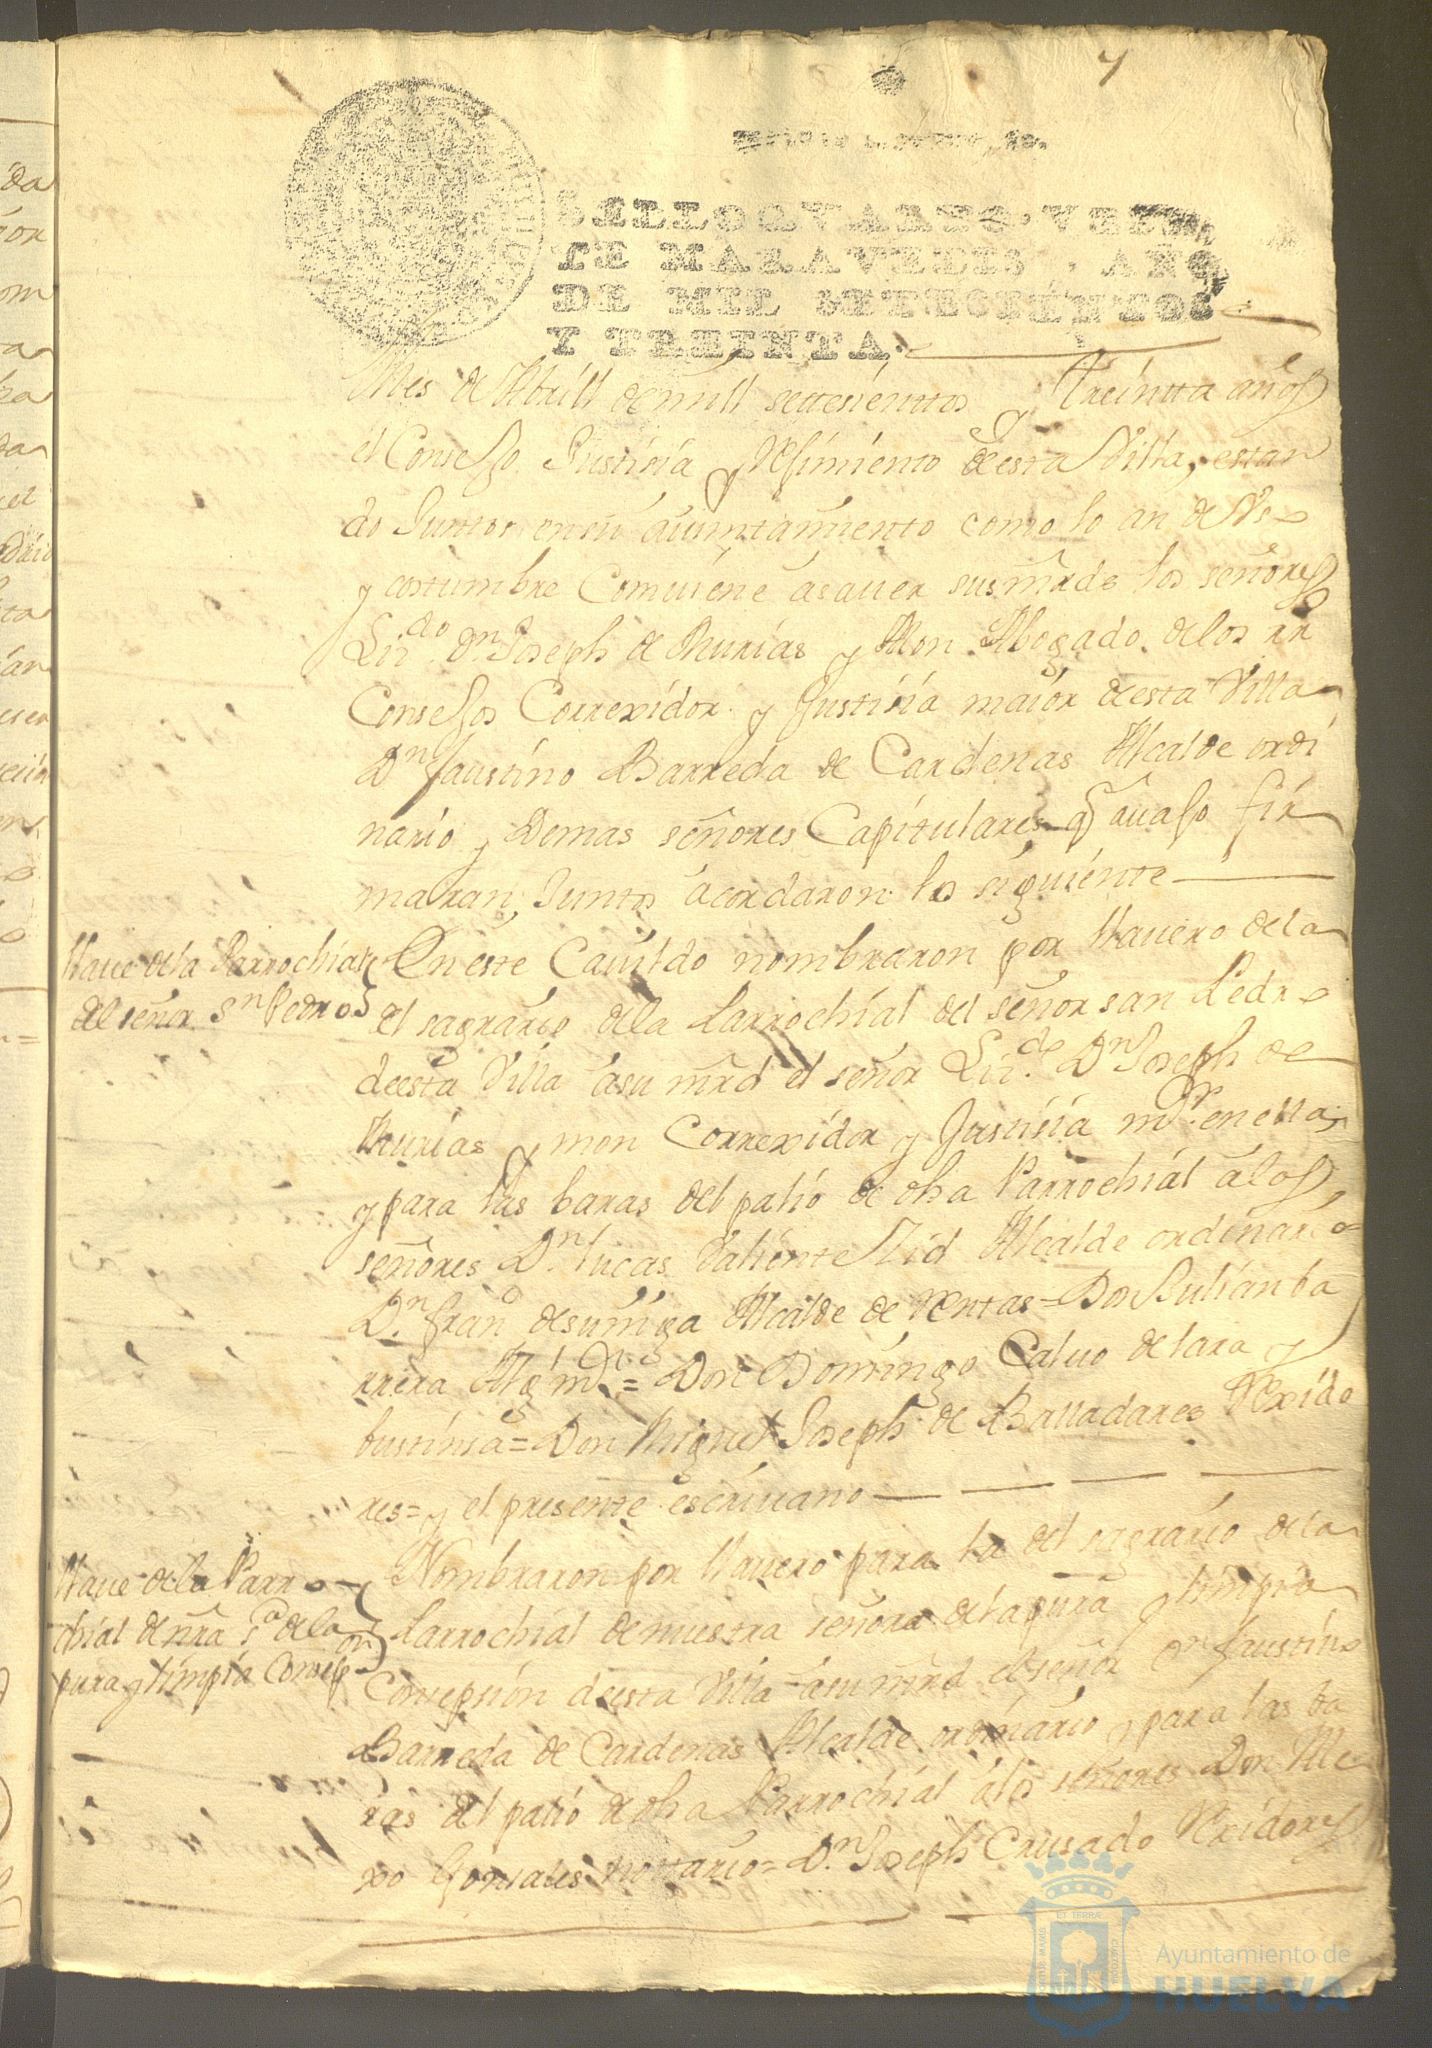 7
SELLO QVARTO, VEIN
TE MARAVEDIS, AÑO
DE MIL SETECIENTOS
Y TREINTA.
Mes de Abrill de mill settesienttos y Treintta años
el Consejo Justisia y Resimiento de esta Villa, estan
do Juntos en su aiuntamiento como lo an de Vso
y costumbre Combiene asauer sus mrds los señores
Lizdo. Dn. Joseph de Thurias y Mon Abogado de los rr
Consejos Correxidor y Justisia maior de esta Villa
Dn. faustino Barreda de Cardenas Alcalde ordi
nario y Demas señores Capitulares q auajo fir
maran, Juntos acordaron lo siguiente
llaue de la Parrochial
del señor Sn Pedro
En este Cauildo nombraron por llauero de la
el sagrario de la Parrochial del señor san Pedro
de esta Villa a su mrd el señor Lizdo. Dn Joseph de
thurias y mon Correxidor y Justisia mr. en ella
y para las baras del palio de dha Parrochial a los
señores Dn. lucas Valiente Alcalde ordinario
Dn. Frano de suniga Alcalde de Rentas = Don Julian ba
rrera Alg mr. = Don Domingo Caluo de lara y
bustinsa = Don Miguel Joseph de Balladares Rexido
res = y el presente escriuano
llaue de la Parro
chial de nra sa de la
pura y limpia Consepon
Nombraron por llauero para la del sagrario de la
Parrochial de nuestra señora de la pura y limpia
Consepsion de esta Villa a su mrd el señor Dn faustino
Barreda de Cardenas Alcalde ordinario y para las ba
ras del palio de dha Parrochial a los señores Don Me
xo Gonsales nottario = Dn. Joseph Crusado Rexidores
Ayuntamiento de
HUELVA